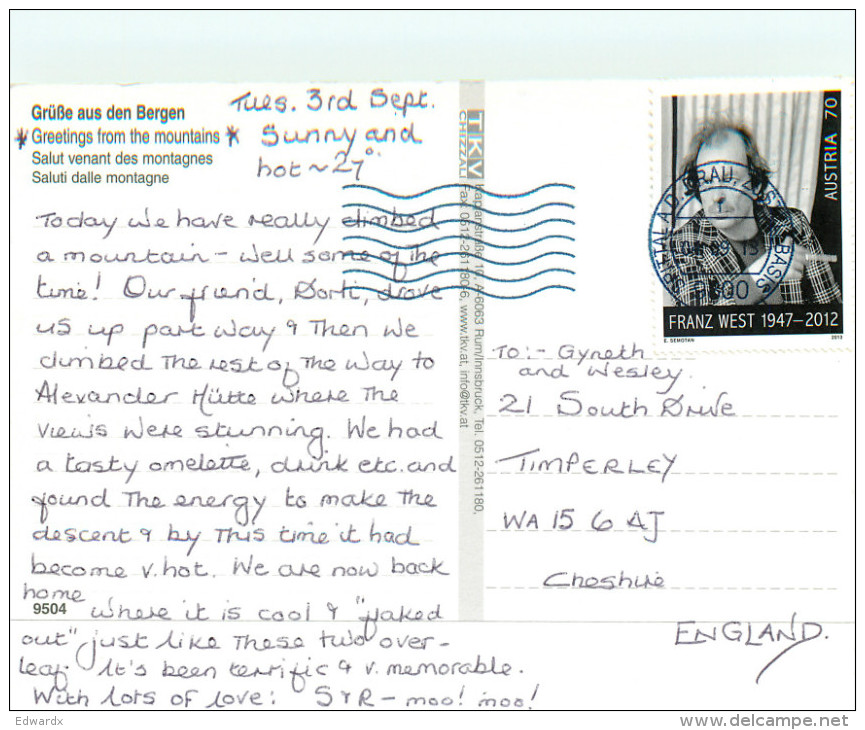 Grüße aus den Bergen
* Greetings from the mountains *
Salut venant des montagnes
Saluti dalle montagne
Tues. 3rd Sept.
Sunny and
hot ~ 27°.
Today we have really climbed
a mountain - well some of the
time! Our friend, Dorti, drove
us up part way & then we
climbed the rest of the way to
Alexander Hütte where the
views were stunning. We had
a tasty omelette, drink etc. and
found the energy to make the
descent & by this time it had
become v. hot. We are now back
home
9504
where it is cool & "flaked
out" just like these two over-
leaf. It's been terrific & v. memorable.
With lots of love: S & R - moo! moo!
TKV
CHIZZALI
Kaplanstraße 10, A-6063 Rum/Innsbruck, Tel. 0512-261180,
Fax: 0512-261180-6, www.tkv.at, info@tkv.at
AUSTRIA 70
FRANZ WEST 1947–2012
E. SEMOTAN 2013
SPITTAL A.D. DRAU, ZUSTELLBASIS
To:- Gyneth
and Wesley.
21 South Drive
TIMPERLEY
WA 15 6 AJ
Cheshire
ENGLAND.
Edwardx
delcampe.net